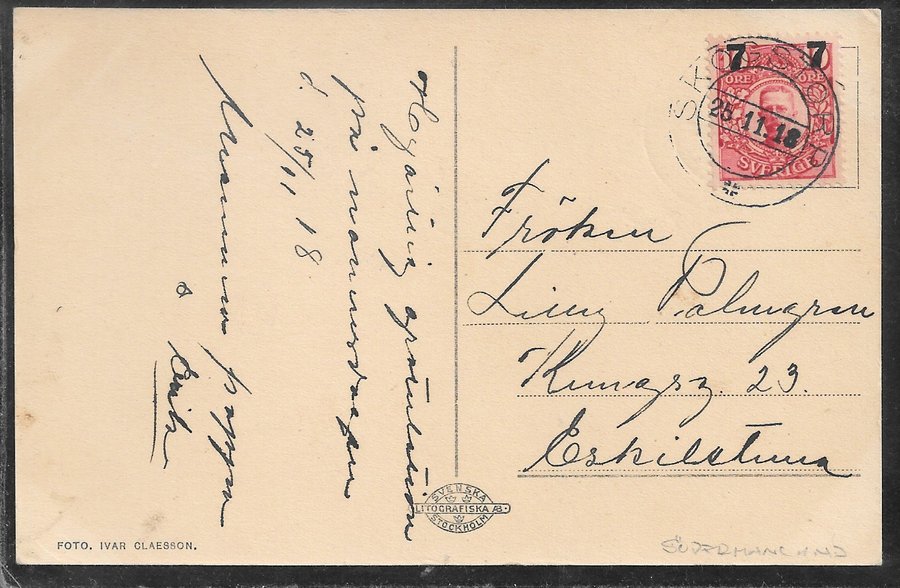 Hjärtlig gratulation
på namnsdagen
d. 25/11 18
Mamma pappa
o
7 7
ÖRE ÖRE
SVERIGE
SKOGSTORP
25.11.18
Fröken
Palmgren
Kungsg. 23.
Eskilstuna
SVENSKA
LITOGRAFISKA AB.
STOCKHOLM
FOTO. IVAR CLAESSON.
SÖDERMANLAND